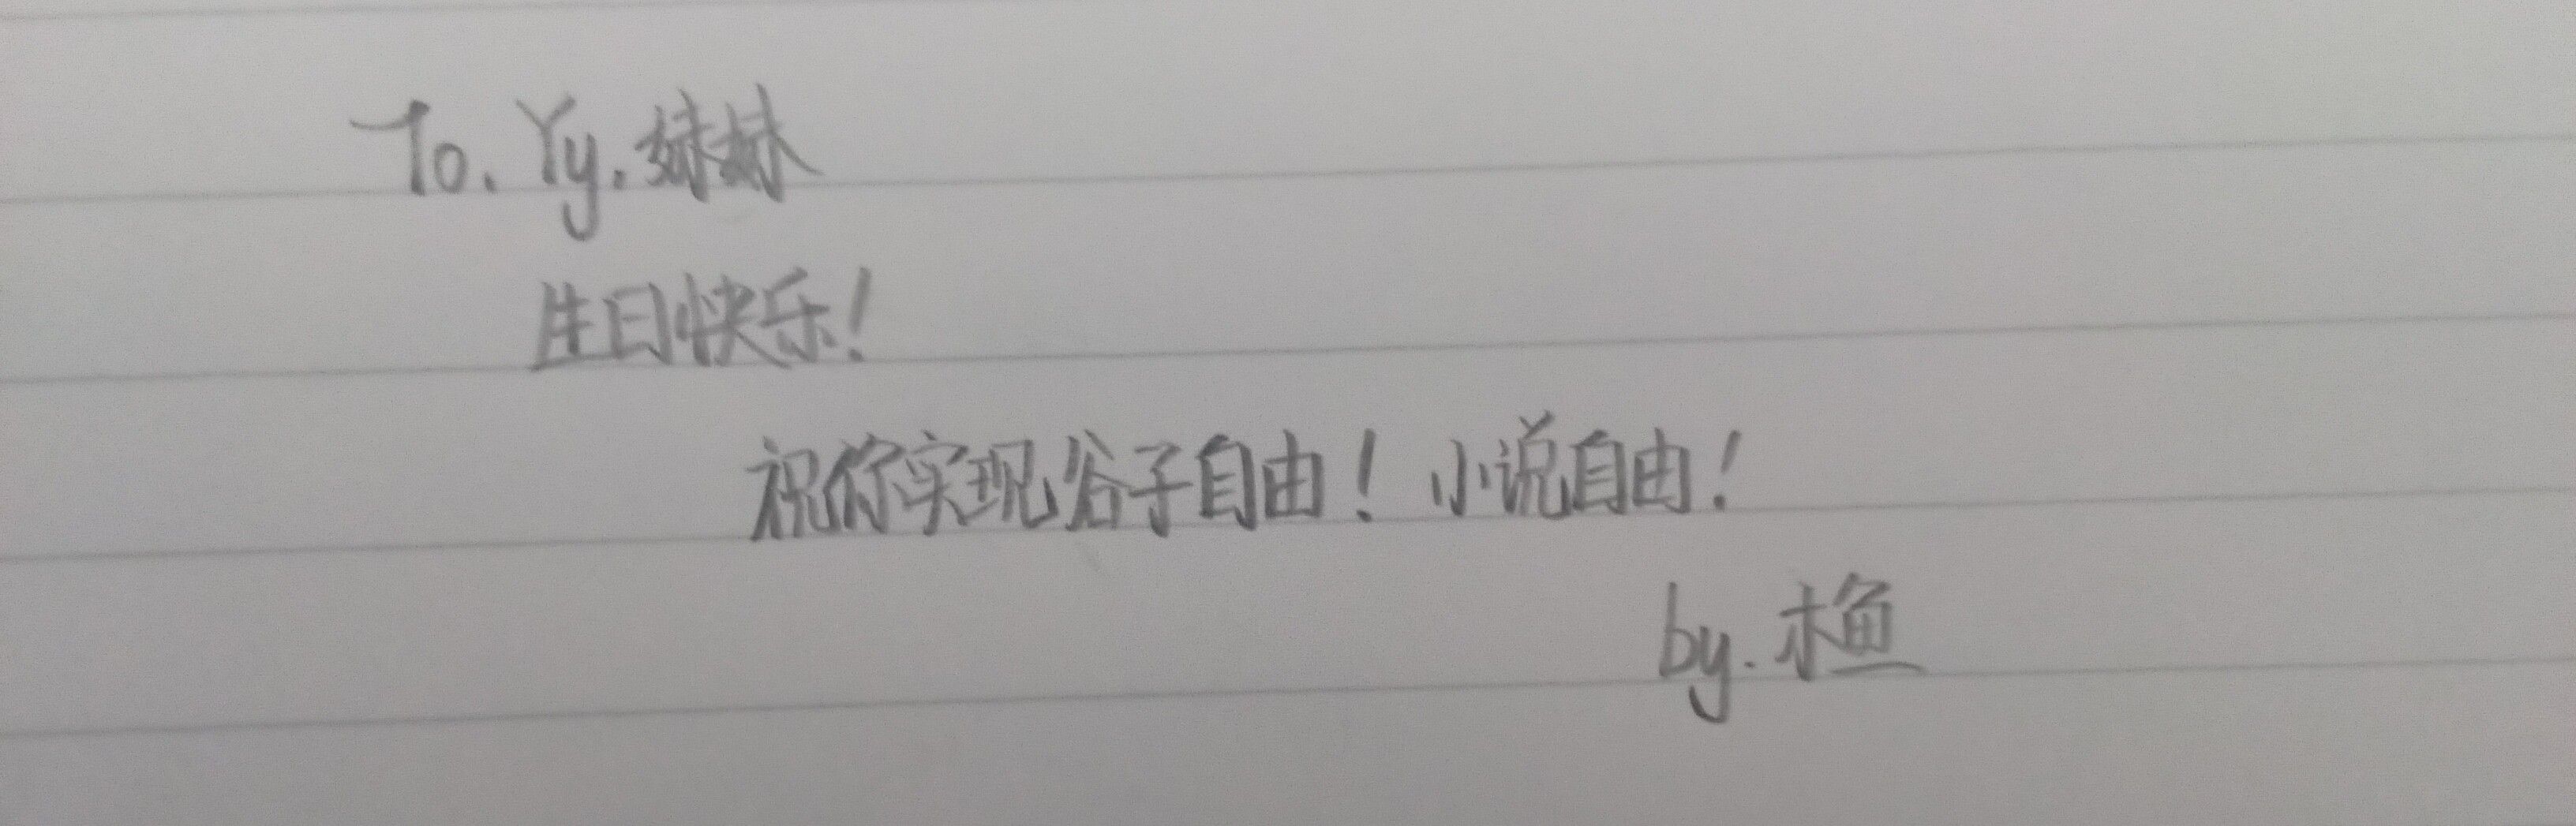 To. Yy. 妹妹
生日快乐!
祝你实现谷子自由! 小说自由!
by. 木鱼